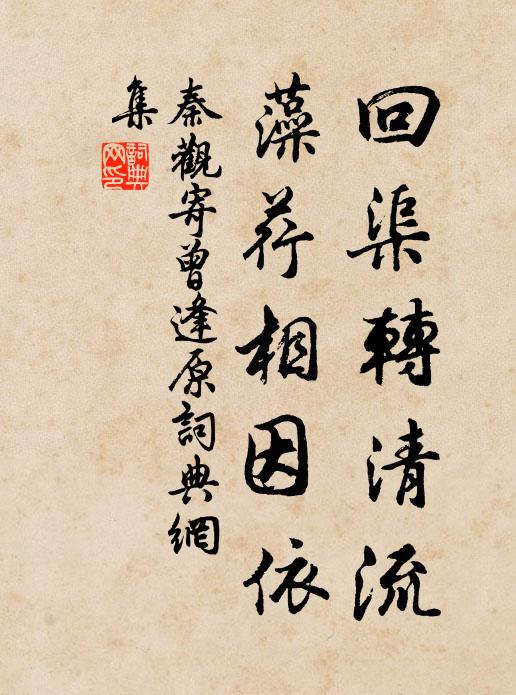 回渠轉清流
藻荇相因依
秦觀寄曾逢原詞典網
集
詞典
网印